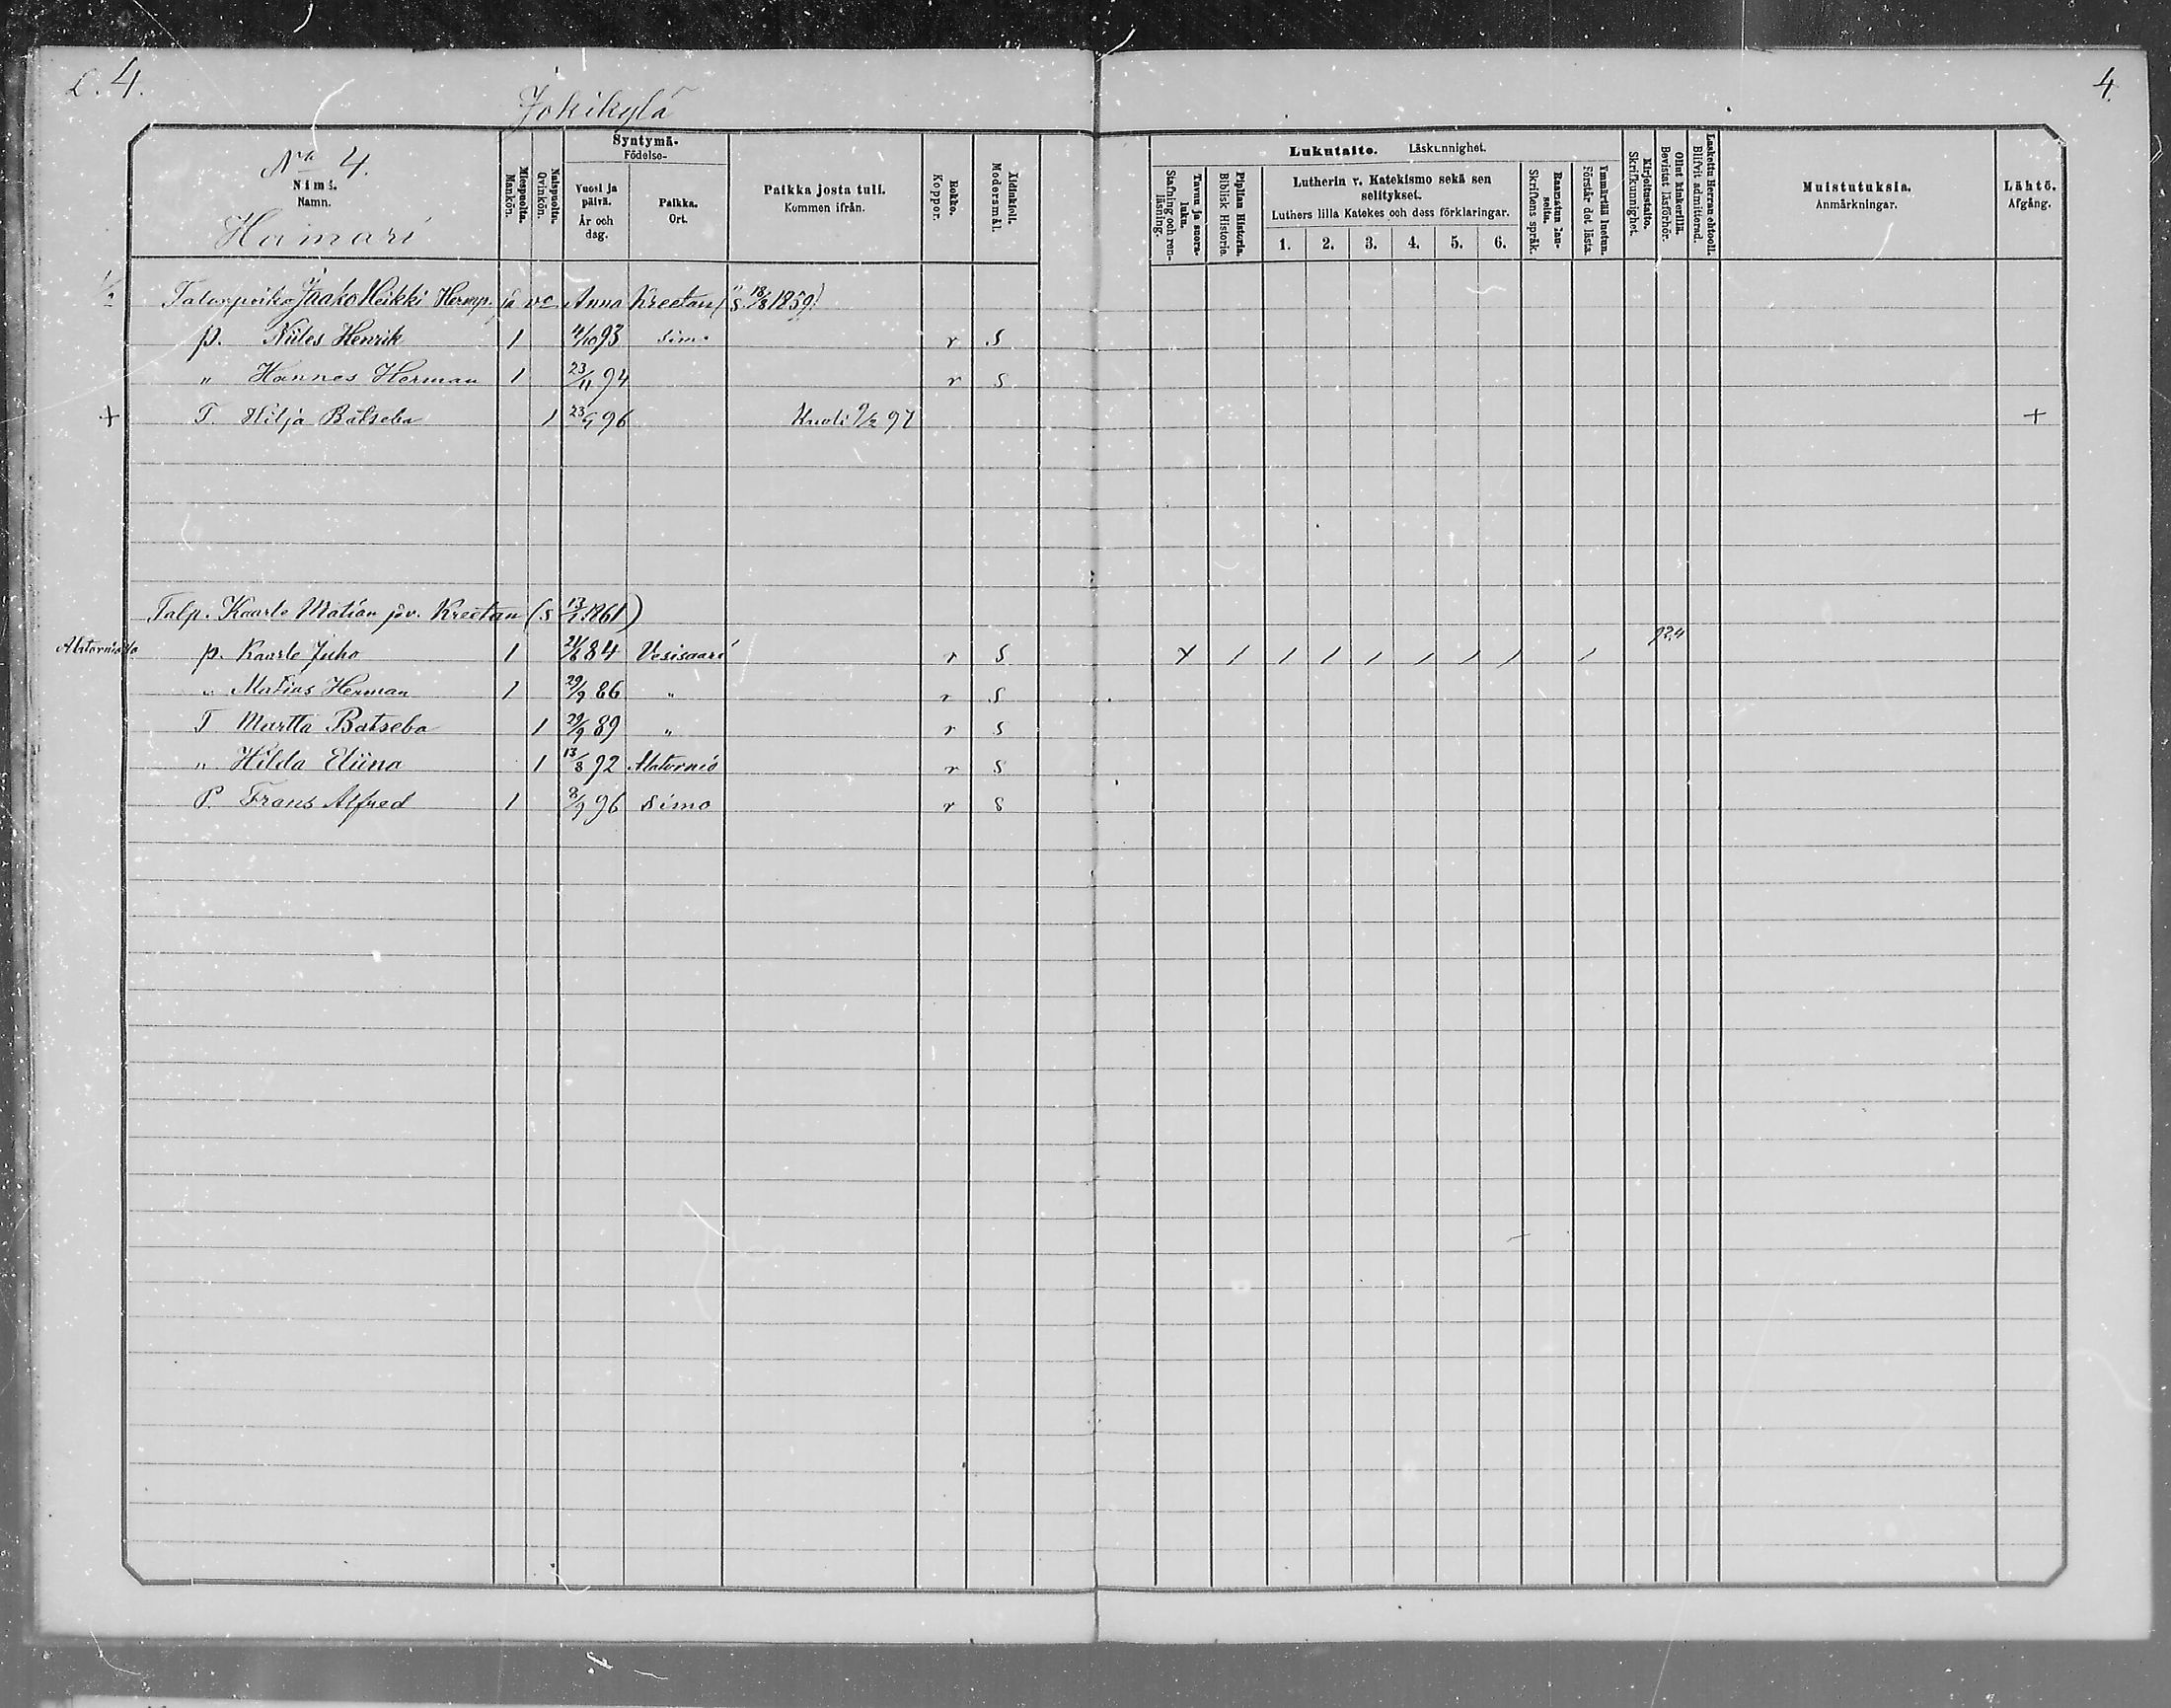 L. 4.
4.
Jokikylä
No 4.
Nimi.
Namn.
Hamari
Miespuolta.
Mankön.
Naispuolta.
Qvinkön.
Syntymä-
Födelse-
Vuosi ja päivä.
År och dag.
Paikka.
Ort.
Paikka josta tuli.
Kommen ifrån.
Rokko.
Koppor.
Äidinkieli.
Modersmål.
Lukutaito. Läskunnighet.
Tavuu ja suora-luku.
Stafning och ren-läsning.
Piplian Historia.
Biblisk Historie.
Lutherin v. Katekismo sekä sen
selitykset.
Luthers lilla Katekes och dess förklaringar.
1. 2. 3. 4. 5. 6.
Raamatun lau-seita.
Skriftens språk.
Ymmärtää luetun.
Förstår det lästa.
Kirjoitustaito.
Skrifkunnighet.
Ollut kinkerillä.
Bevistat läsförhör.
Laskettu Herran ehtoolli.
Blifvit admitterad.
Muistutuksia.
Anmärkningar.
Lähtö.
Afgång.
1/2 Talonpoika Jaako Heikki Hermp. ja vo Anna Kreetan (s. 18/8 1859)
p. Niiles Henrik 1 4/10 93 Simo r S
" Hannes Herman 1 23/11 94 r S
+ T. Hilja Batseba 1 23/ 96 Kuoli 9/2 97 +
Talp. Kaarle Matian ja v. Kreetan (s 13/ 1861)
Alatornio p. Kaarle Juho 1 21/6 84 Vesisaari r S x / / / / / / / /
" Matias Herman 1 29/9 86 " r S
T Martta Batseba 1 29/9 89 " r S
" Hilda Eliina 1 13/8 92 Alatornio r S
P. Frans Alfred 1 8/9 96 Simo r S